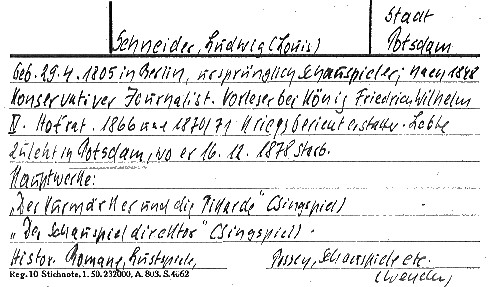 Stadt
Schneider, Ludwig (Louis) Potsdam
Geb. 29.4.1805 in Berlin, ursprünglich Schauspieler; nach 1848
Konservativer Journalist. Vorleser bei König Friedrich Wilhelm
IV. Hofrat. 1866 und 1870/71 Kriegsberichterstatter. Lebte
zuletzt in Potsdam, wo er 16.12.1878 starb.
Hauptwerke:
„Der Kurmärker und die Pikarde" (Singspiel)
„Der Schauspieldirektor" (Singspiel) -
Histor. Romane, Lustspiele, Possen, Schauspiele etc.
Reg. 10 Stichnote, 1. 50. 232000, A. 803. S. 4662